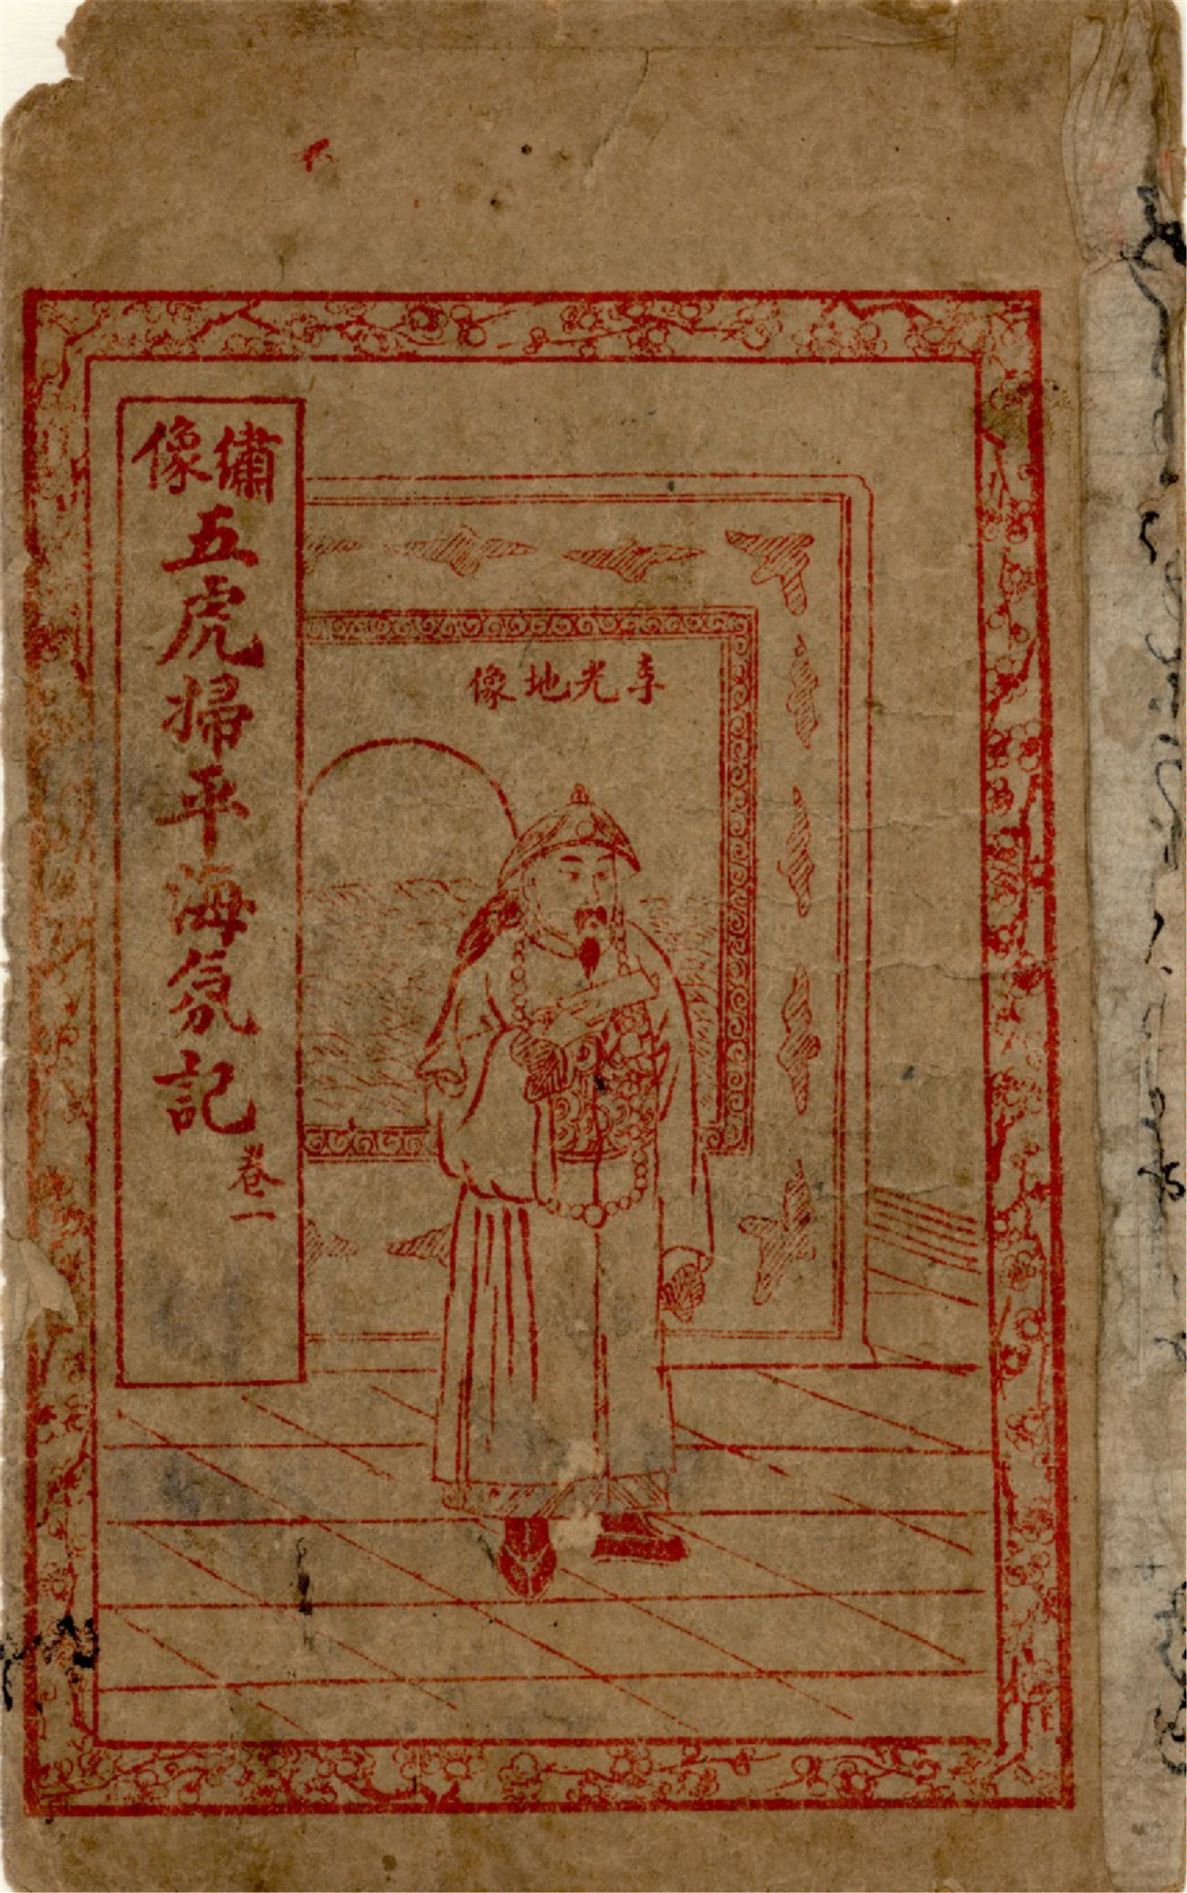 李光地像
繡像
五虎掃平海氛記
卷一